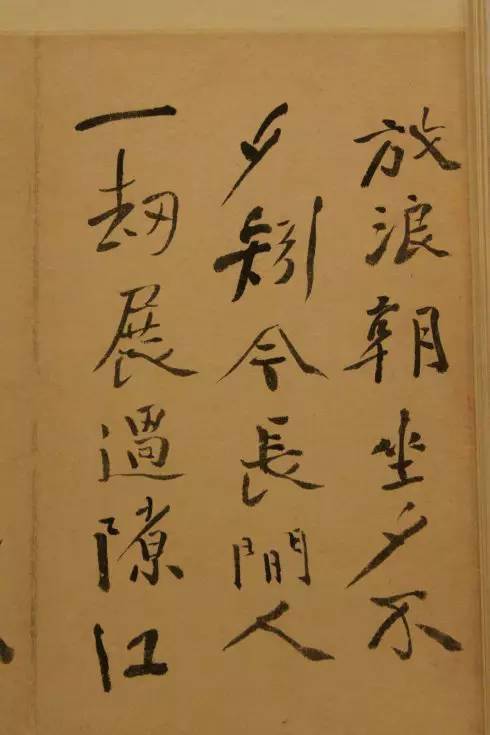 放浪朝坐夕不
夕矧今長閒人
一刼展過隙江